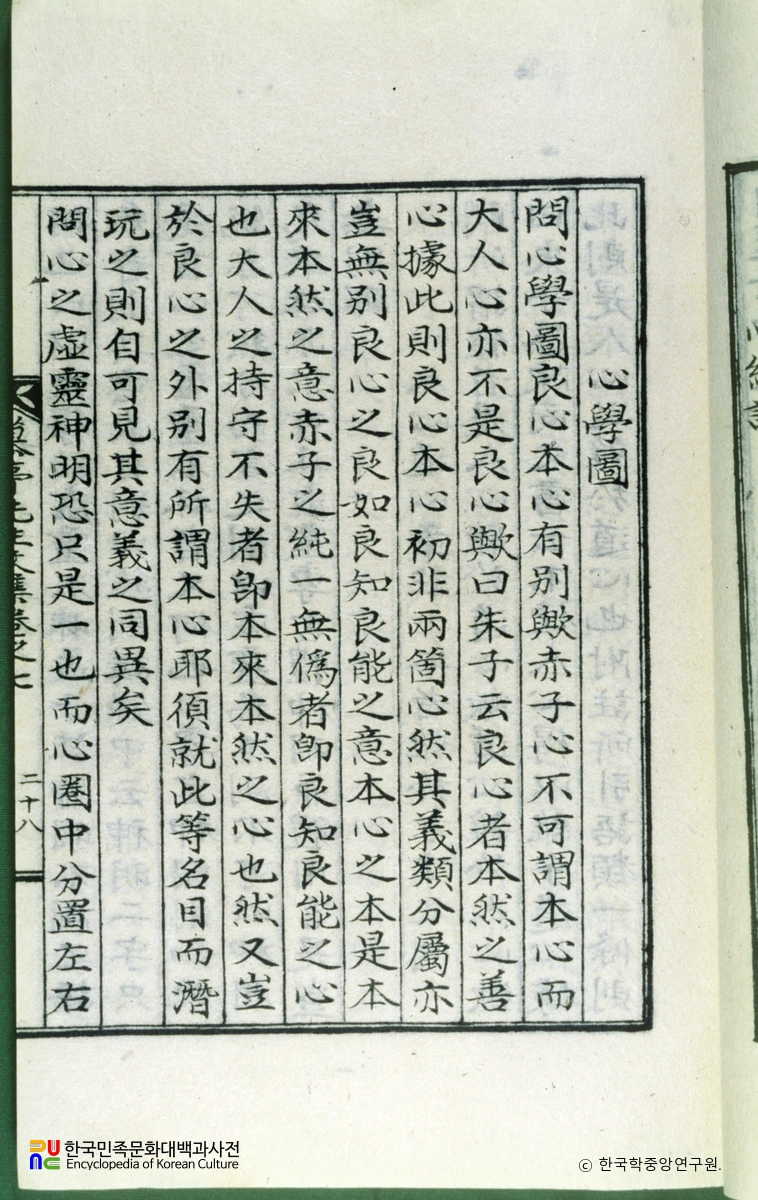 心學圖
問心學圖良心本心有別歟赤子心不可謂本心而
大人心亦不是良心歟曰朱子云良心者本然之善
心據此則良心本心初非兩箇心然其義類分屬亦
豈無别良心之良如良知良能之意本心之本是本
來本然之意赤子之純一無僞者卽良知良能之心
也大人之持守不失者卽本來本然之心也然又豈
於良心之外别有所謂本心耶須就此等名目而潛
玩之則自可見其意義之同異矣
問心之虛靈神明恐只是一也而心圈中分置左右
先生文集卷之七
二十八
한국민족문화대백과사전
Encyclopedia of Korean Culture
© 한국학중앙연구원.